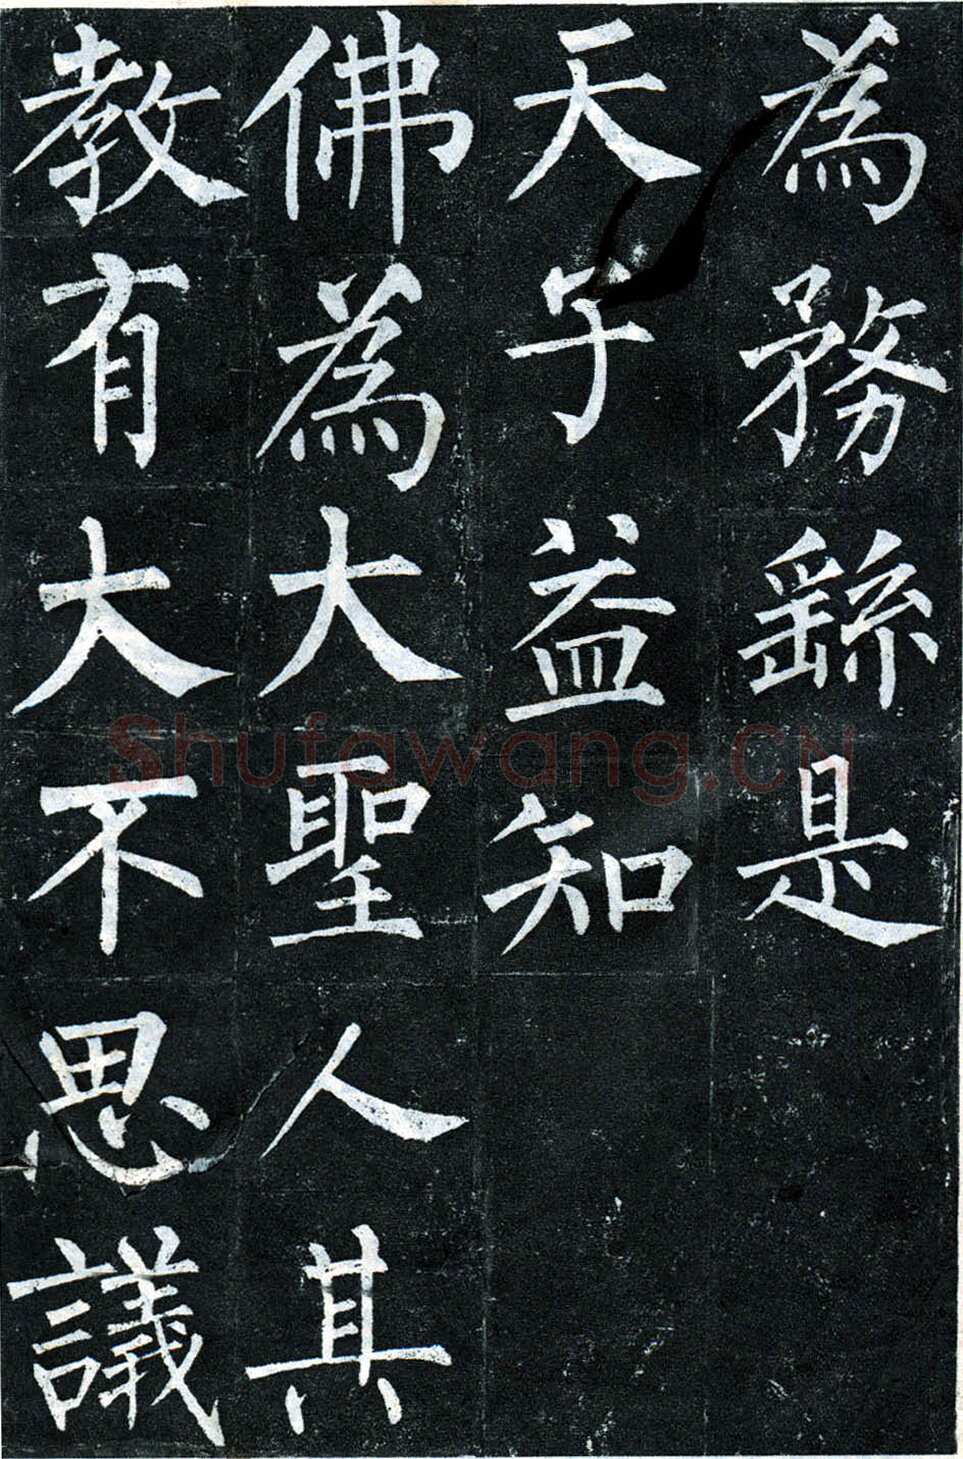 為務繇是
天子益知
佛為大聖人其
教有大不思議
Shufawang.CN